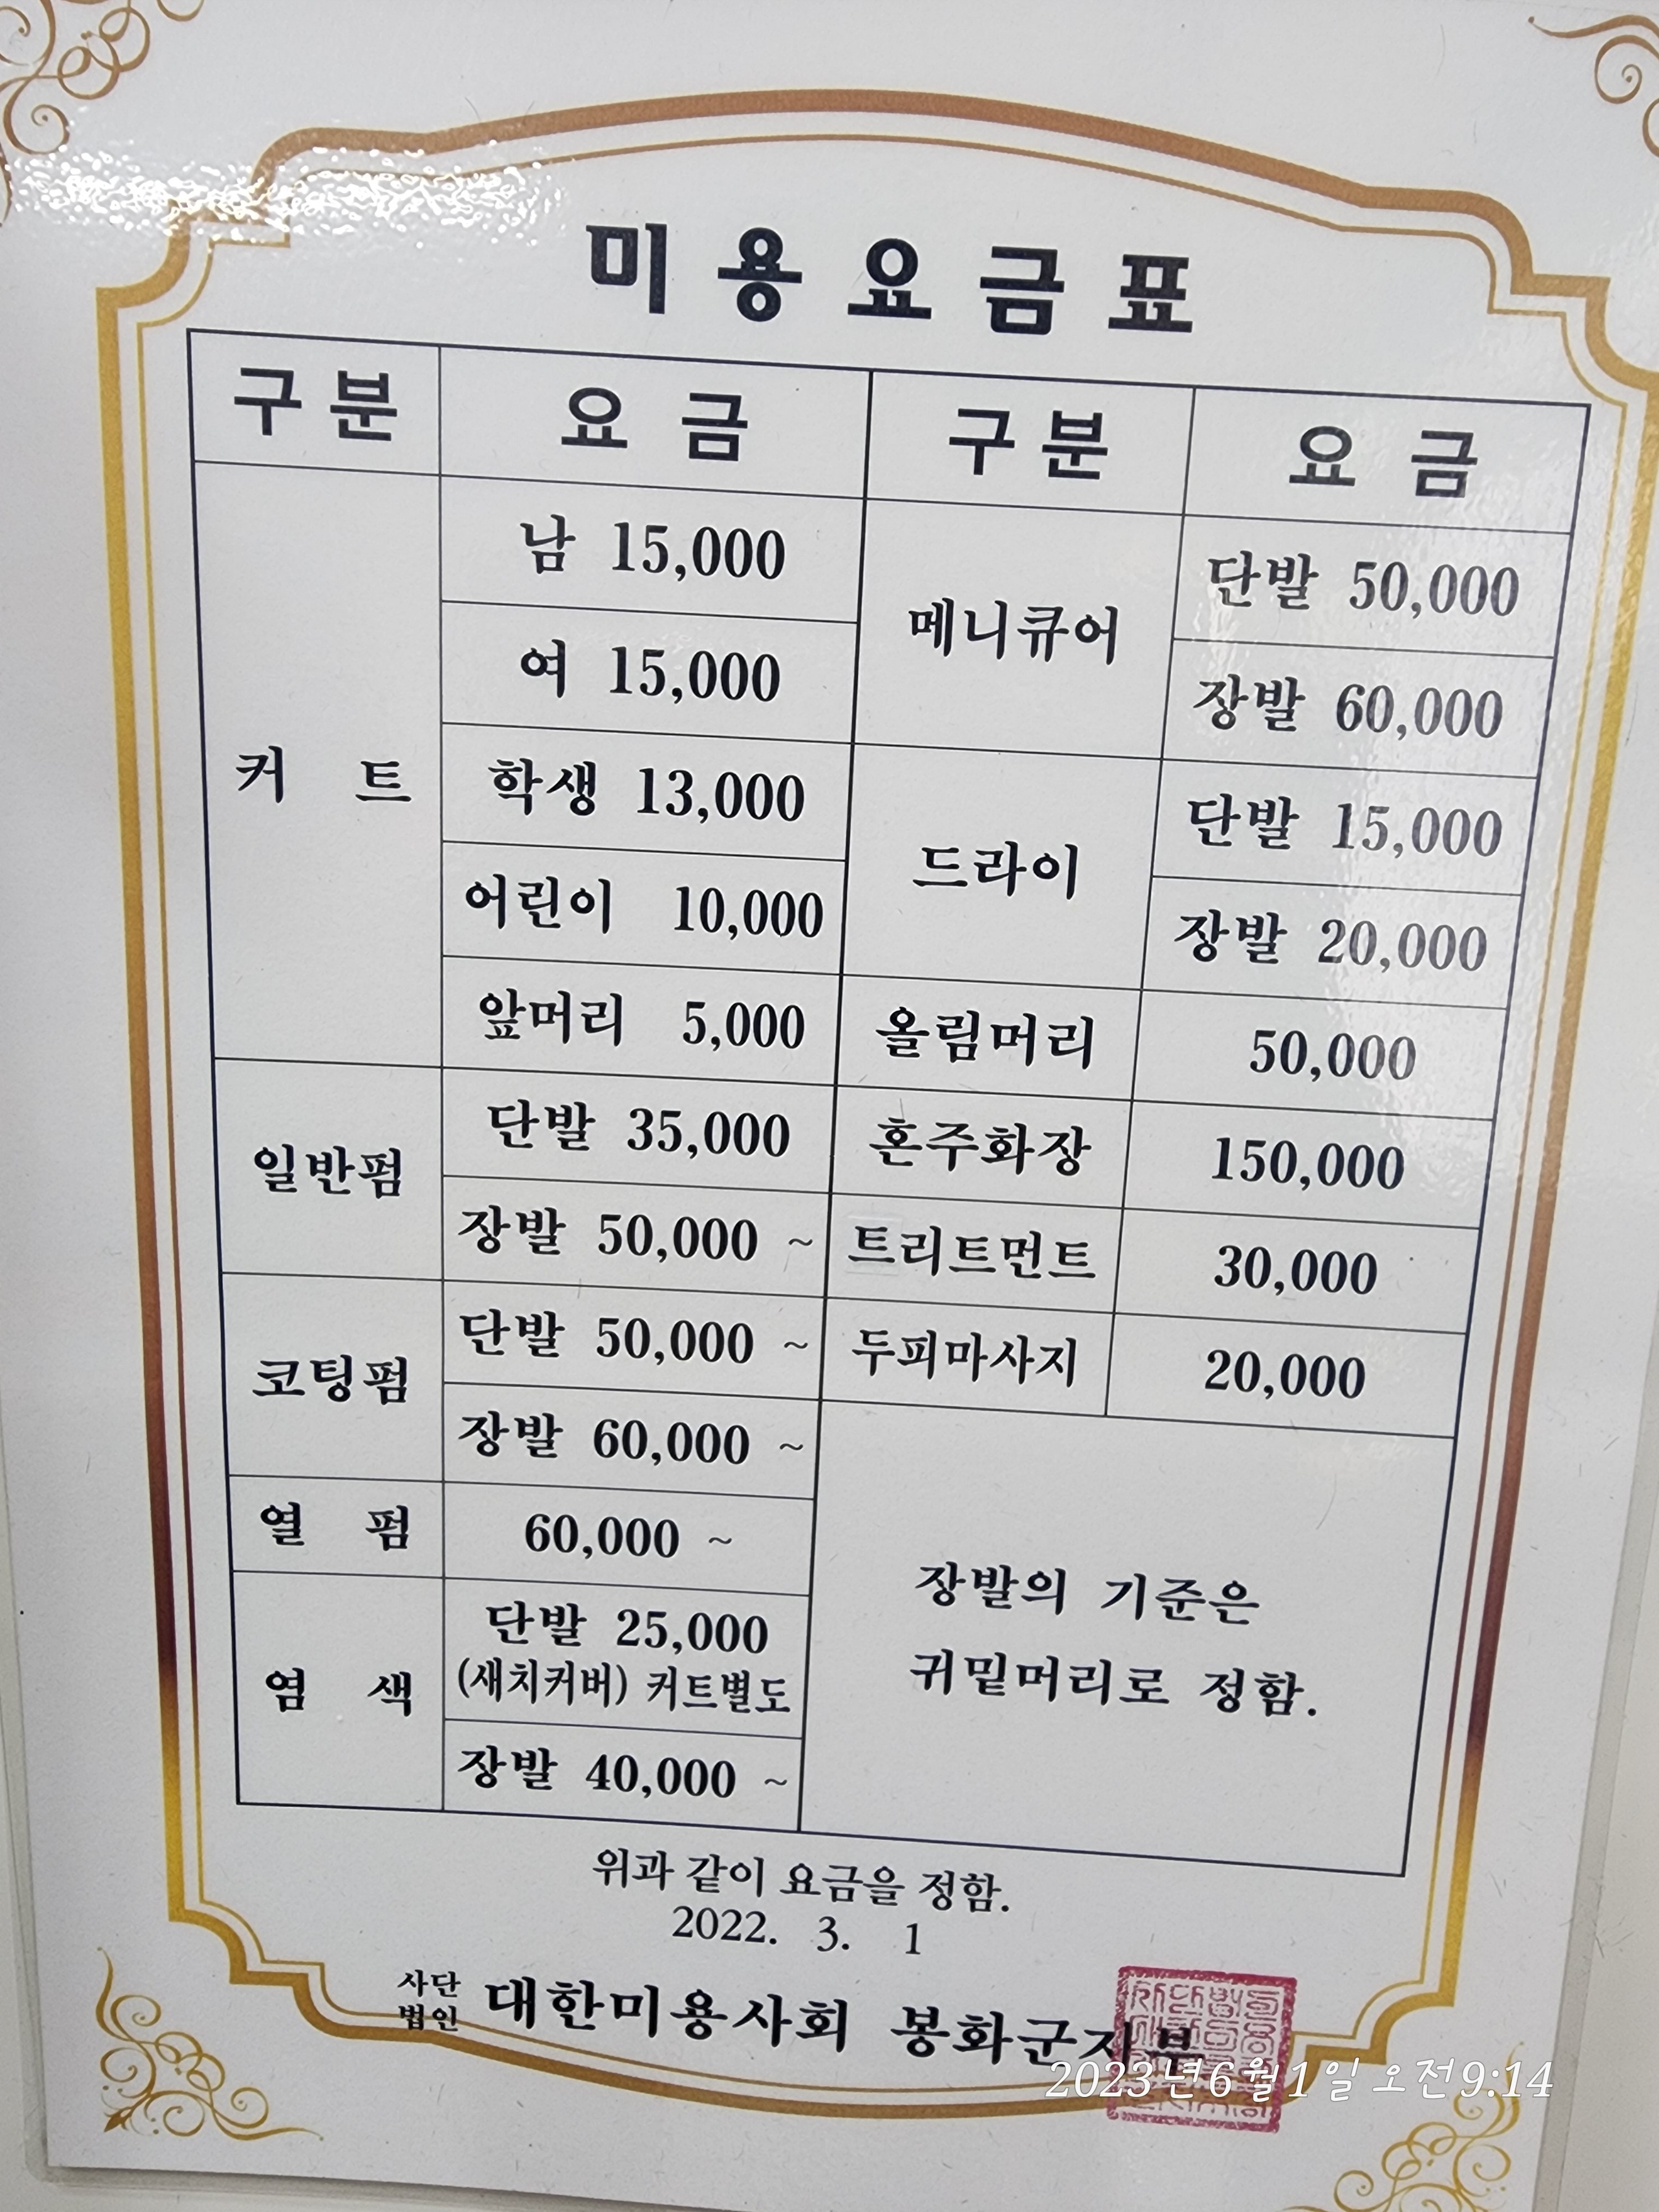 미용요금표
구분 요금 구분 요금
커트 남 15,000 메니큐어 단발 50,000
여 15,000 장발 60,000
학생 13,000 드라이 단발 15,000
어린이 10,000 장발 20,000
앞머리 5,000 올림머리 50,000
일반펌 단발 35,000 혼주화장 150,000
장발 50,000 ~ 트리트먼트 30,000
코팅펌 단발 50,000 ~ 두피마사지 20,000
장발 60,000 ~
열 펌 60,000 ~
염 색 단발 25,000
(새치커버) 커트별도
장발 40,000 ~
장발의 기준은
귀밑머리로 정함.
위과 같이 요금을 정함.
2022. 3. 1
사단법인 대한미용사회 봉화군지부
2023년 6월 1일 오전 9:14